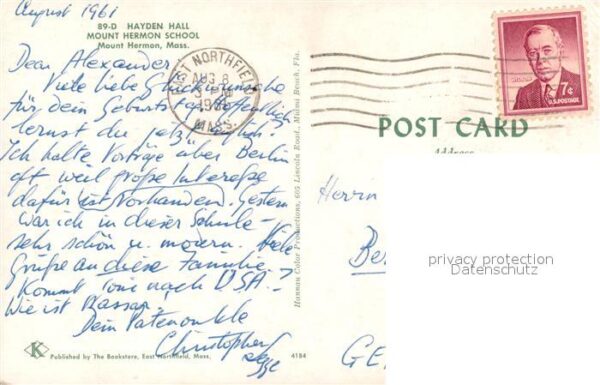 August 1961
89-D HAYDEN HALL
MOUNT HERMON SCHOOL
Mount Hermon, Mass.
Dear Alexander
Viele liebe Glückwünsche
für dein Geburtstag. Hoffentlich
lernst du jetzt
Ich halte Vorträge über Berlin
oft weil große Intereße
dafür ist Vorhanden. Gestern
war ich in dieser Schule -
sehr schön u. modern. Viele
Grüße an diese Familie.
Kommt Toni nach USA?
Wie ist Nassau?
Dein Patenonkle
Christopher
K
Published by The Bookstore, East Northfield, Mass.
4184
Hannau Color Productions, 605 Lincoln Road, Miami Beach, Fla.
EAST NORTHFIELD
AUG 8
PM
1961
MASS.
7¢
U.S. POSTAGE
POST CARD
Address
Herrn
Be
GE
privacy protection
Datenschutz